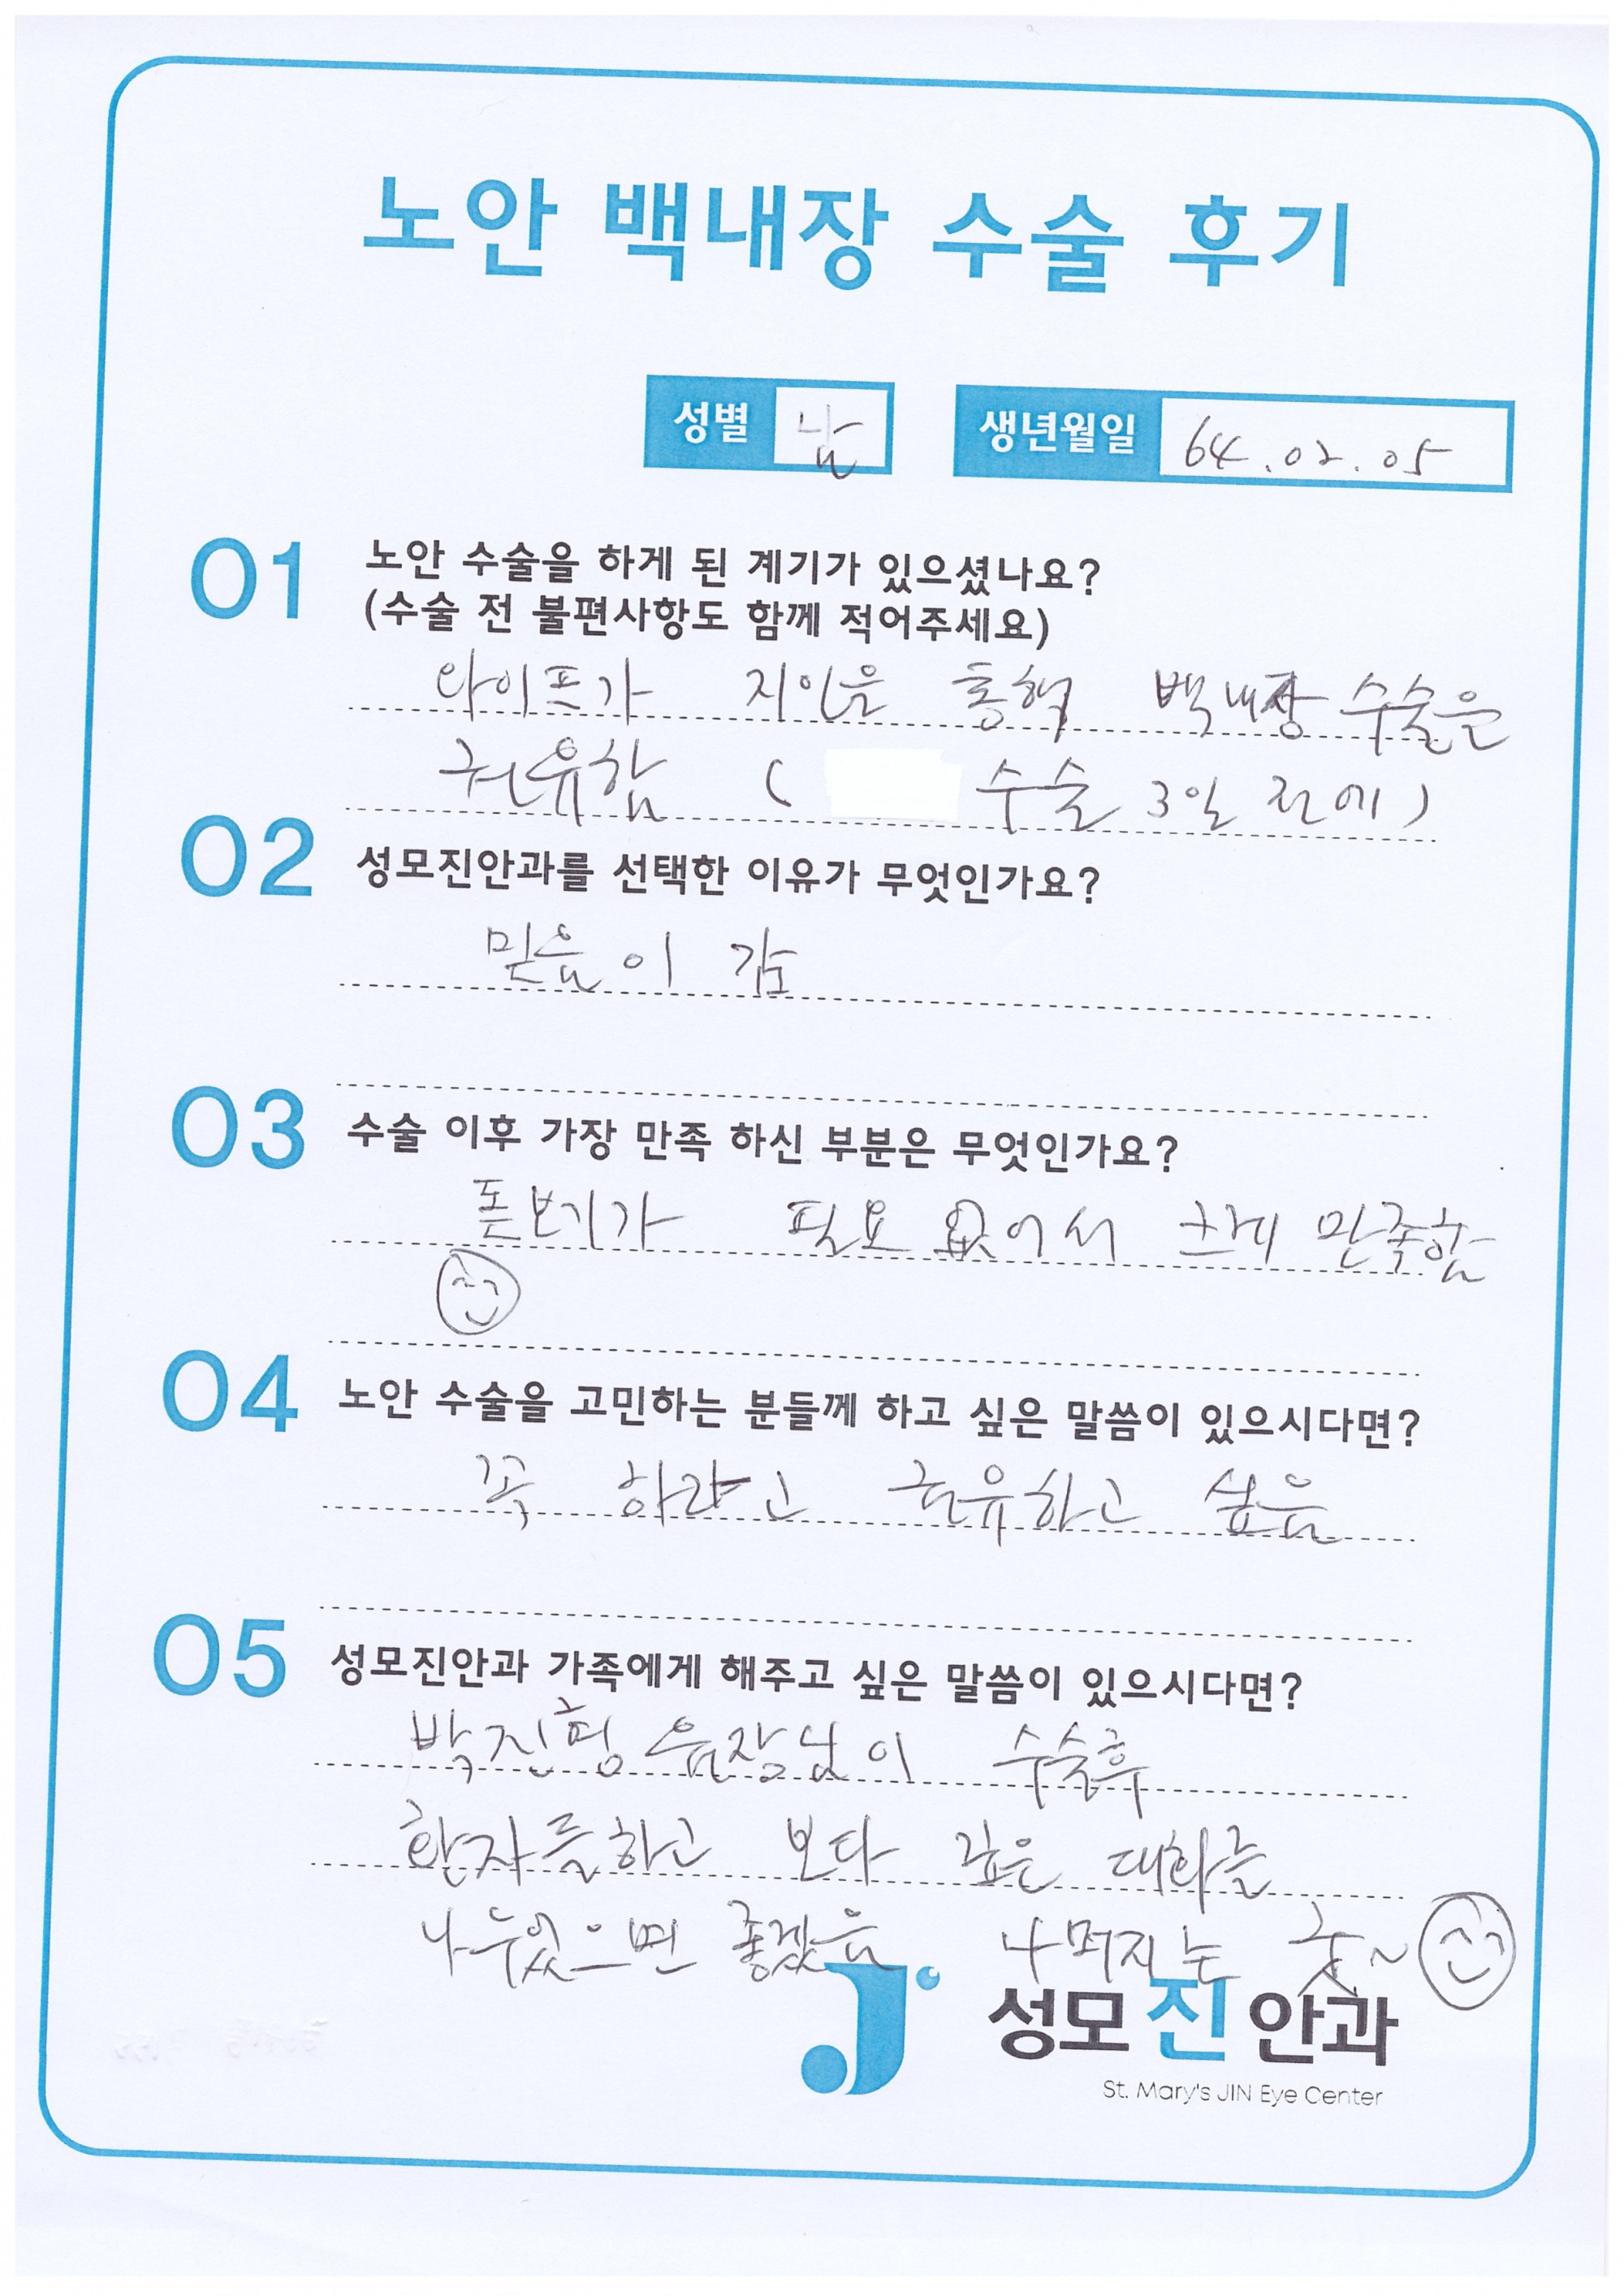 노안 백내장 수술 후기
성별 남 생년월일 64.02.05
01 노안 수술을 하게 된 계기가 있으셨나요?
(수술 전 불편사항도 함께 적어주세요)
와이프가 지인을 통해 백내장 수술을
권유함 ( 수술 3일 전에)
02 성모진안과를 선택한 이유가 무엇인가요?
믿음이 감
03 수술 이후 가장 만족 하신 부분은 무엇인가요?
돋보기가 필요 없어서 크게 만족함
04 노안 수술을 고민하는 분들께 하고 싶은 말씀이 있으시다면?
꼭 하라고 권유하고 싶음
05 성모진안과 가족에게 해주고 싶은 말씀이 있으시다면?
박진형 원장님이 수술후
환자들하고 보다 깊은 대화를
나누었으면 좋겠음 나머지는 굿~
성모진안과
St. Mary's JIN Eye Center